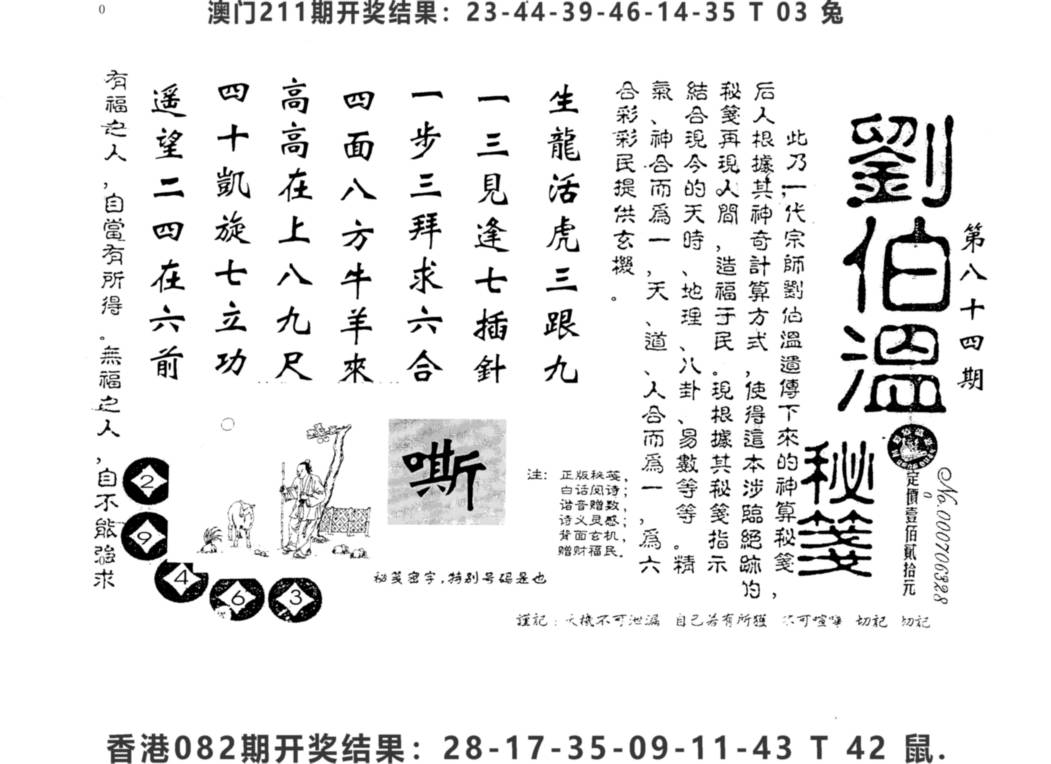 澳门211期开奖结果：23-44-39-46-14-35 T 03 兔
劉伯溫
秘箋
第八十四期
定價壹佰貳拾元
No.000706328
此乃一代宗師劉伯溫遺傳下來的神算秘箋，
后人根據其神奇計算方式，使得這本涉臨絕跡的
秘箋再現人間，造福于民。現根據其秘箋指示
結合現今的天時、地理、八卦、易數等等。精
氣、神合而爲一，天、道、人合而爲一，爲六
合彩彩民提供玄機。
生龍活虎三跟九
一三見逢七插針
一步三拜求六合
四面八方牛羊來
高高在上八九尺
四十凱旋七立功
遥望二四在六前
有福之人，自當有所得。無福之人，自不能強求
嘶
注：正版秘笺，
白话闵诗；
谐音赠数，
诗义灵感；
背面玄机，
赠财福民。
秘笺密字，特别号码是也
2
9
4
6
3
謹記：天機不可泄漏 自己若有所獲 不可喧嘩 切記 切記
香港082期开奖结果：28-17-35-09-11-43 T 42 鼠.